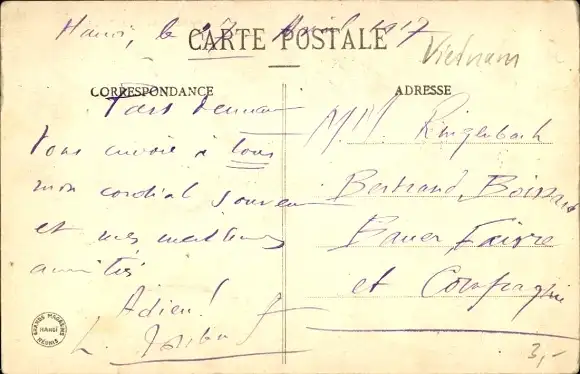 Hanoi, le 3 Avril 1917
CARTE POSTALE
Vietnam
CORRESPONDANCE
Pars demain
Vous envoie à tous
mon cordial souvenir
et mes meilleures
amitiés
Adieu!
L.
ADRESSE
MM. Ringenbach
Bertrand, Boissard
Bauer Faivre
et Compagnie
GRANDS MAGASINS
HANOI
RÉUNIS
3,-